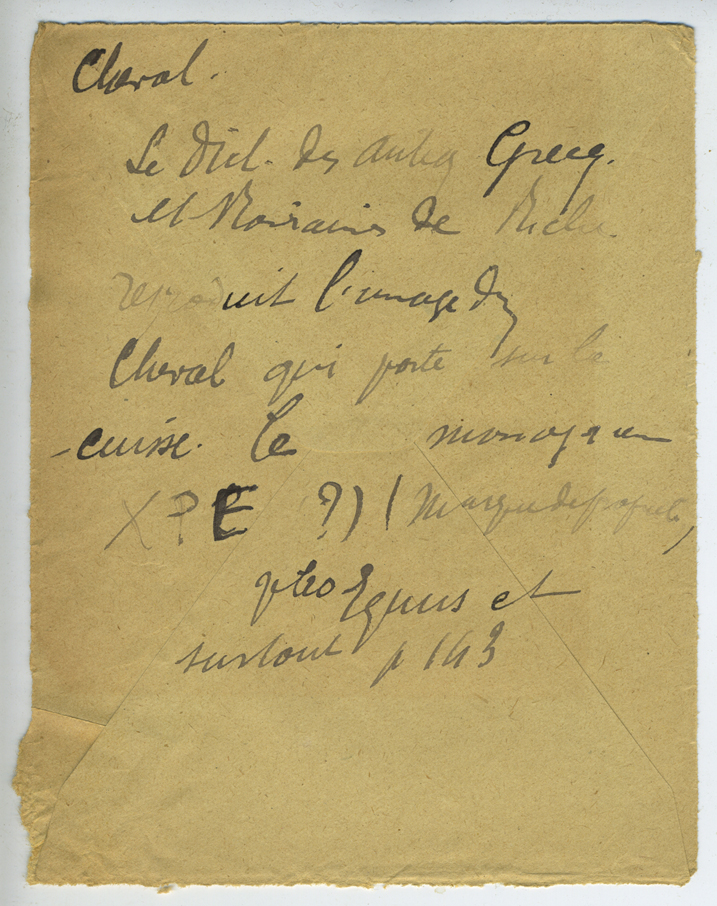 Cheval.
Le Dict. des Antiq Grecq.
et Romaines de Rich.
reproduit l'image du
Cheval qui porte sur la
cuisse. le monogram
X P E ?) (Marque de propriété,
Equus et
surtout p 143